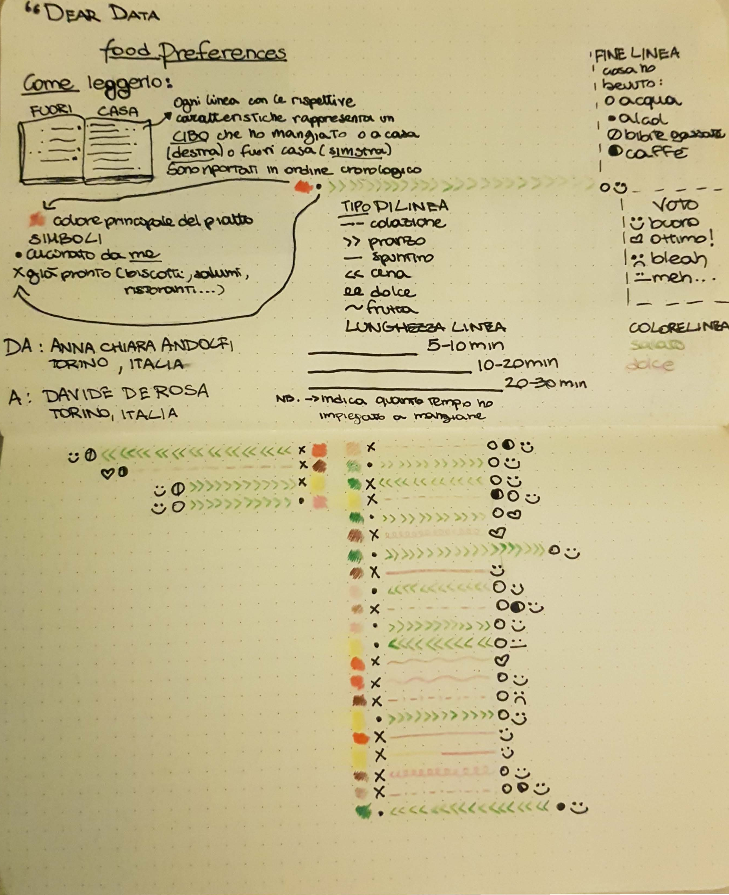 “DEAR DATA
food Preferences
Come leggerlo:
FUORI CASA
Ogni linea con le rispettive
caratteristiche rappresenta un
CIBO che ho mangiato o a casa
(destra) o fuori casa (sinistra)
Sono riportati in ordine cronologico
colore principale del piatto
SIMBOLI
• cucinato da me
X già pronto (biscotti, salumi,
ristoranti...)
TIPO DI LINEA
-·- colazione
>> pranzo
— spuntino
<< cena
ee dolce
~ frutta
LUNGHEZZA LINEA
5-10 min
10-20 min
20-30 min
NB. -> indica quanto tempo ho
impiegato a mangiare
FINE LINEA
cosa ho
bevuto:
o acqua
• alcol
bibite gassate
caffè
VOTO
buono
ottimo!
bleah
meh...
COLORE LINEA
salato
dolce
DA: ANNA CHIARA ANDOLFI
TORINO, ITALIA
A: DAVIDE DE ROSA
TORINO, ITALIA